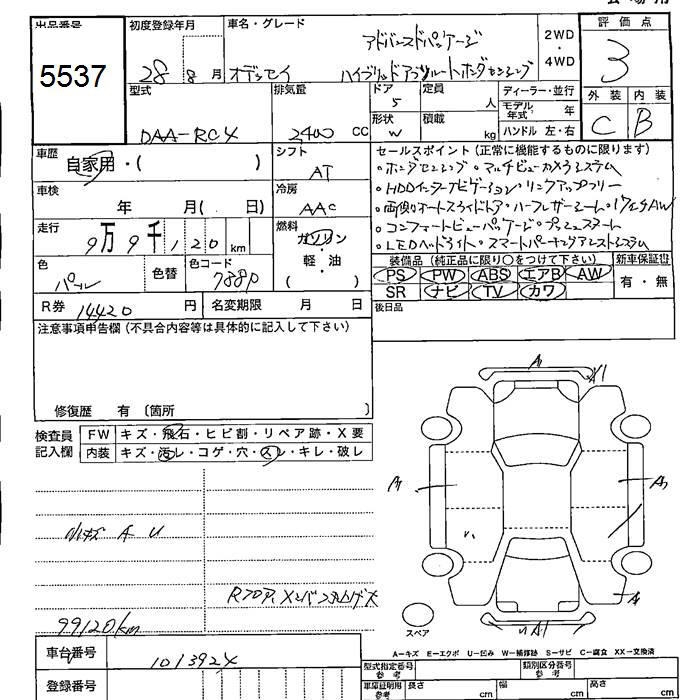 出品番号
5537
初度登録年月
28年 8月
車名・グレード
アドバンスドパッケージ
オデッセイ ハイブリッドアブソルートホンダセンシング
2WD・4WD
評価点
3
外装 内装
C B
型式
DAA-RC4
排気量
2400 CC
ドア
5
定員
人
形状
W
積載
kg
ディーラー・並行
モデル年式 年
ハンドル 左・右
車歴
自家用・( )
シフト
AT
車検
年 月( 日)
冷房
AAC
走行
9万9千120 km
燃料
ガソリン・軽・油
( )
色
パール
色替
色コード
788P
R券 14420 円
名変期限 月 日
セールスポイント(正常に機能するものに限ります)
・ホンダセンシング ・マルチビューカメラシステム
・HDDインターナビゲーション・リンクアップフリー
・両側オートスライドドア・ハーフレザーシート・17インチAW
・コンフォートビューパッケージ・プッシュスタート
・LEDヘッドライト・スマートパーキングアシストシステム
装備品(純正品に限り○をつけて下さい)
新車保証書
PS PW ABS エアB AW
SR ナビ TV カワ
有・無
後日品
注意事項申告欄(不具合内容等は具体的に記入して下さい)
修復歴 有〔箇所 〕
検査員記入欄
FW キズ・飛石・ヒビ割・リペア跡・X要
内装 キズ・汚レ・コゲ・穴・スレ・キレ・破レ
小キズ A U
99120km
A
X1
A
A
A
A1
スペア
A－キズ E－エクボ U－凹み W－補修跡 S－サビ C－腐食 XX－交換済
車台番号
1013924
登録番号
型式指定番号 参考
類別区分番号 参考
車庫証明用 参考
長さ cm
幅 cm
高さ cm